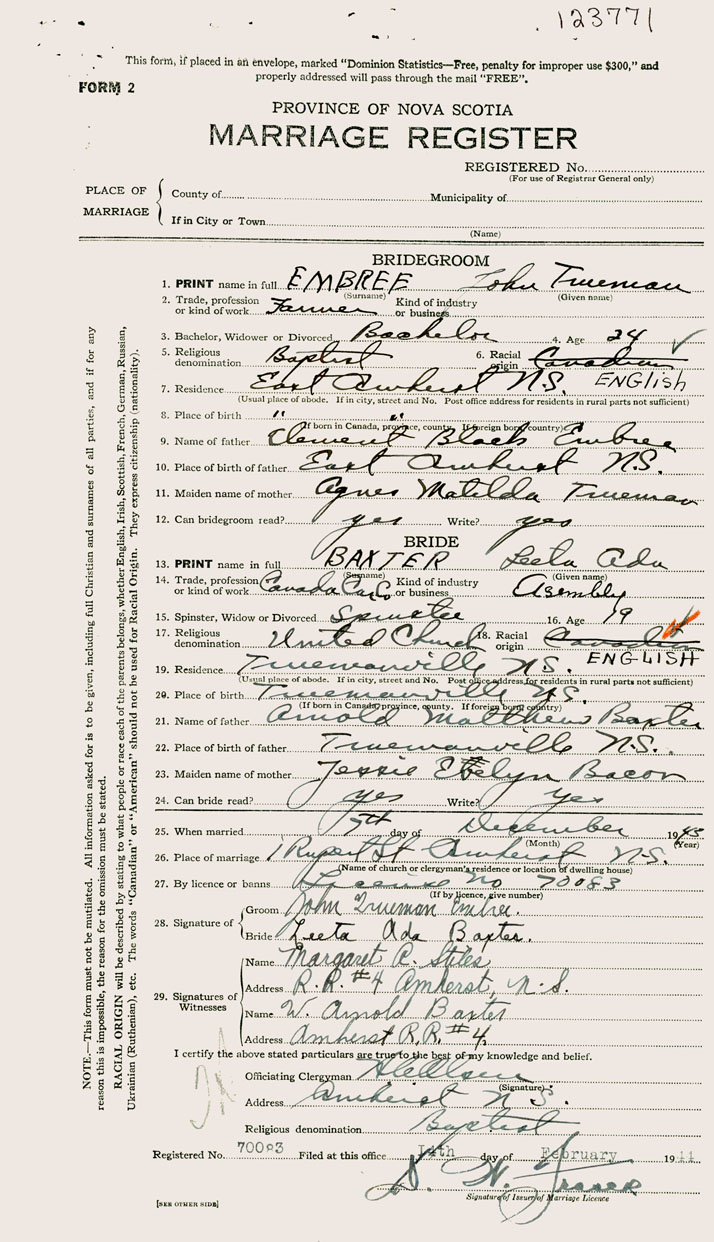 123771
This form, if placed in an envelope, marked "Dominion Statistics—Free, penalty for improper use $300," and
properly addressed will pass through the mail "FREE".
FORM 2
PROVINCE OF NOVA SCOTIA
MARRIAGE REGISTER
REGISTERED No.
(For use of Registrar General only)
PLACE OF MARRIAGE
County of Municipality of
If in City or Town
(Name)
BRIDEGROOM
1. PRINT name in full EMBREE John Trueman
(Surname) (Given name)
2. Trade, profession or kind of work Farmer Kind of industry or business
3. Bachelor, Widower or Divorced Bachelor 4. Age 24
5. Religious denomination Baptist 6. Racial origin Canadian ENGLISH
7. Residence East Amherst N.S.
(Usual place of abode. If in city, street and No. Post office address for residents in rural parts not sufficient)
8. Place of birth " "
(If born in Canada, province, county. If foreign born country)
9. Name of father Clement Black Embree
10. Place of birth of father East Amherst N.S.
11. Maiden name of mother Agnes Matilda Trueman
12. Can bridegroom read? yes Write? yes
BRIDE
13. PRINT name in full BAXTER Leeta Ada
(Surname) (Given name)
14. Trade, profession or kind of work Canada Car Co Kind of industry or business Asembly
15. Spinster, Widow or Divorced Spinster 16. Age 19
17. Religious denomination United Church 18. Racial origin Canadian ENGLISH
19. Residence Truemanville N.S.
(Usual place of abode. If in city, street and No. Post office address for residents in rural parts not sufficient)
20. Place of birth Truemanville N.S.
(If born in Canada, province, county. If foreign born country)
21. Name of father Arnold Matthews Baxter
22. Place of birth of father Truemanville N.S.
23. Maiden name of mother Jessie Evelyn Bacon
24. Can bride read? yes Write? yes
25. When married day of December 1943
(Month) (Year)
26. Place of marriage 1 Rupert St Amherst N.S.
(Name of church or clergyman's residence or location of dwelling house)
27. By licence or banns License No 70083
(If by licence, give number)
28. Signature of
Groom John Trueman Embree.
Bride Leeta Ada Baxter.
29. Signatures of Witnesses
Name Margaret R. Stiles
Address R.R. #4 Amherst, N.S.
Name W. Arnold Baxter
Address Amherst R.R. #4.
I certify the above stated particulars are true to the best of my knowledge and belief.
Officiating Clergyman
(Signature)
Address Amherst N.S.
Religious denomination Baptist
Registered No. 70083 Filed at this office 14th day of February 19 44
Fraser
Signature of Issuer of Marriage Licence
[SEE OTHER SIDE]
NOTE.—This form must not be mutilated. All information asked for is to be given, including full Christian and surnames of all parties, and if for any
reason this is impossible, the reason for the omission must be stated.
RACIAL ORIGIN will be described by stating to what people or race each of the parents belongs, whether English, Irish, Scottish, French, German, Russian,
Ukrainian (Ruthenian), etc. The words "Canadian" or "American" should not be used for Racial Origin. They express citizenship (nationality).